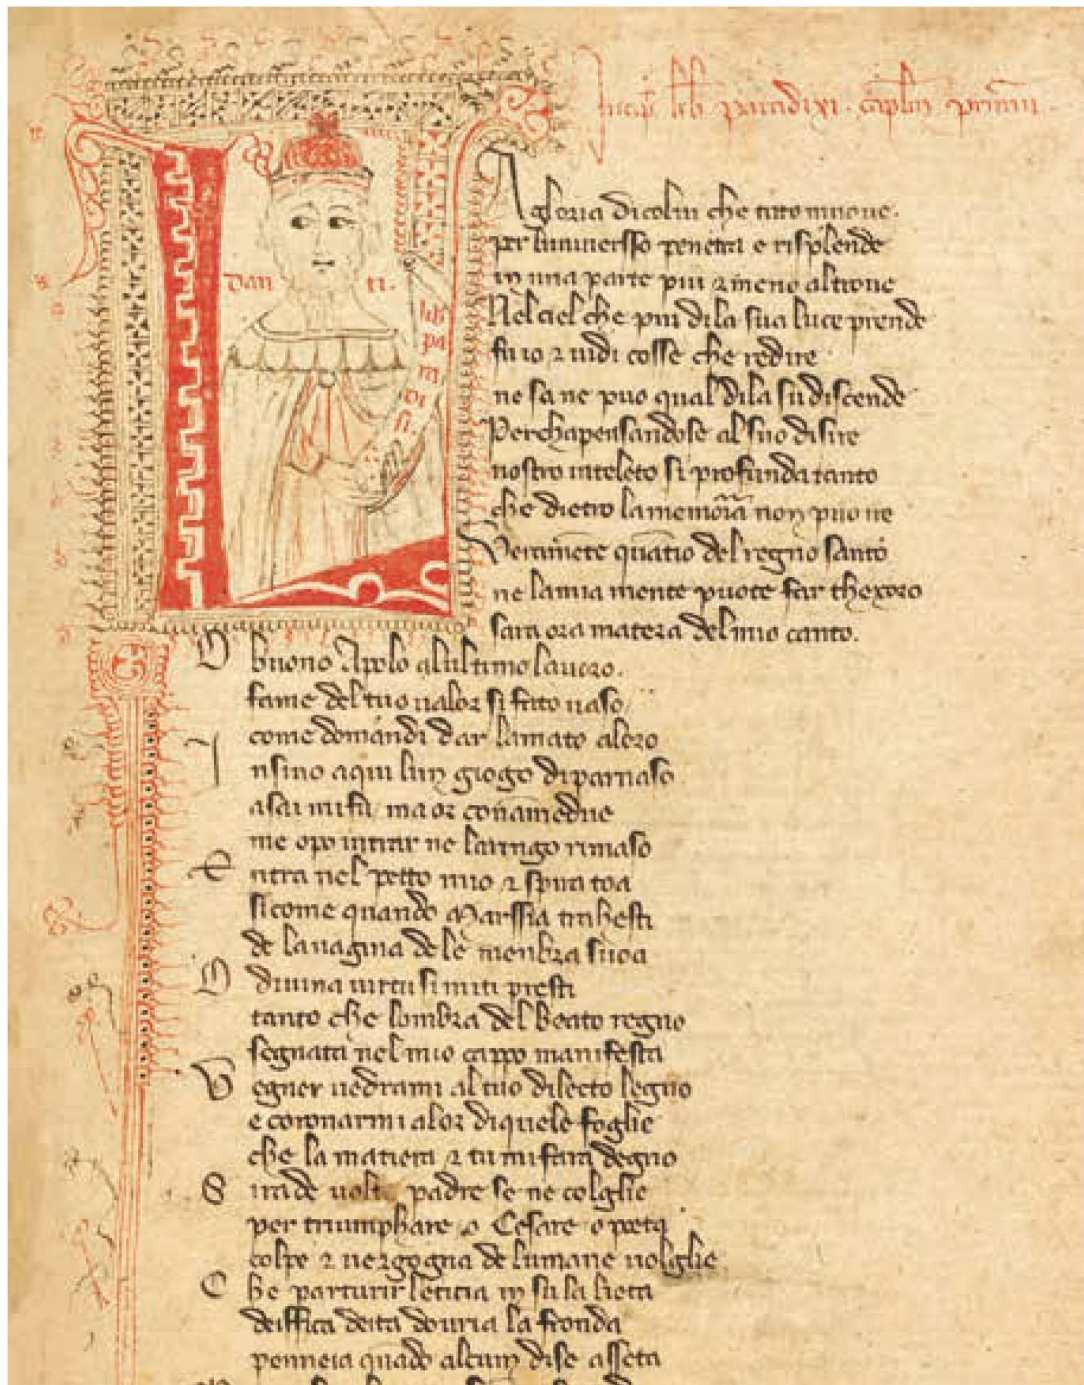 Incip lib paradixi. capitlm primum.
dan ti.
lib
pa
ra
di
si.
La gloria dicolui che tuto muove.
per luniversso penetra e risplende
in una parte piu & meno altrove
Nelciel che piu dila sua luce prende
fu io & uidi cosse che redire
ne sa ne puo qual dila su discende
Perch apensandose al suo disire
nostro inteleto si profunda tanto
che dietro la memoria non puo ire
Veramēte quātio del regno santo
ne lamia mente puote far thexoro
sara ora matera del mio canto.
O buono Apolo alultimo lauoro.
fame del tuo ualor si fato uaso
come domandi dar lamato aloro
Insino aqui lun giogo diparnaso
asai mi fu ma or con amedue
me opo intrar ne laringo rimaso
Entra nel petto mio & spira toa
sicome quando Marssia traesti
de lauagina dele menbra suoa
O diuina uirtu si miti presti
tanto che lombra del beato regno
segnata nel mio cappo manifesta
Vegner uedrami al tuo dilecto legno
e coronarmi alor diquele foglie
che la matiera & tu mi farai degno
Si rade uolte padre se ne colglie
per triumphare o Cesare o poeta
colpe & uergogna de lumane uolglie
Che parturir leticia in su la lieta
deiffica deita douria la fronda
penneia quādo alcun dise asseta